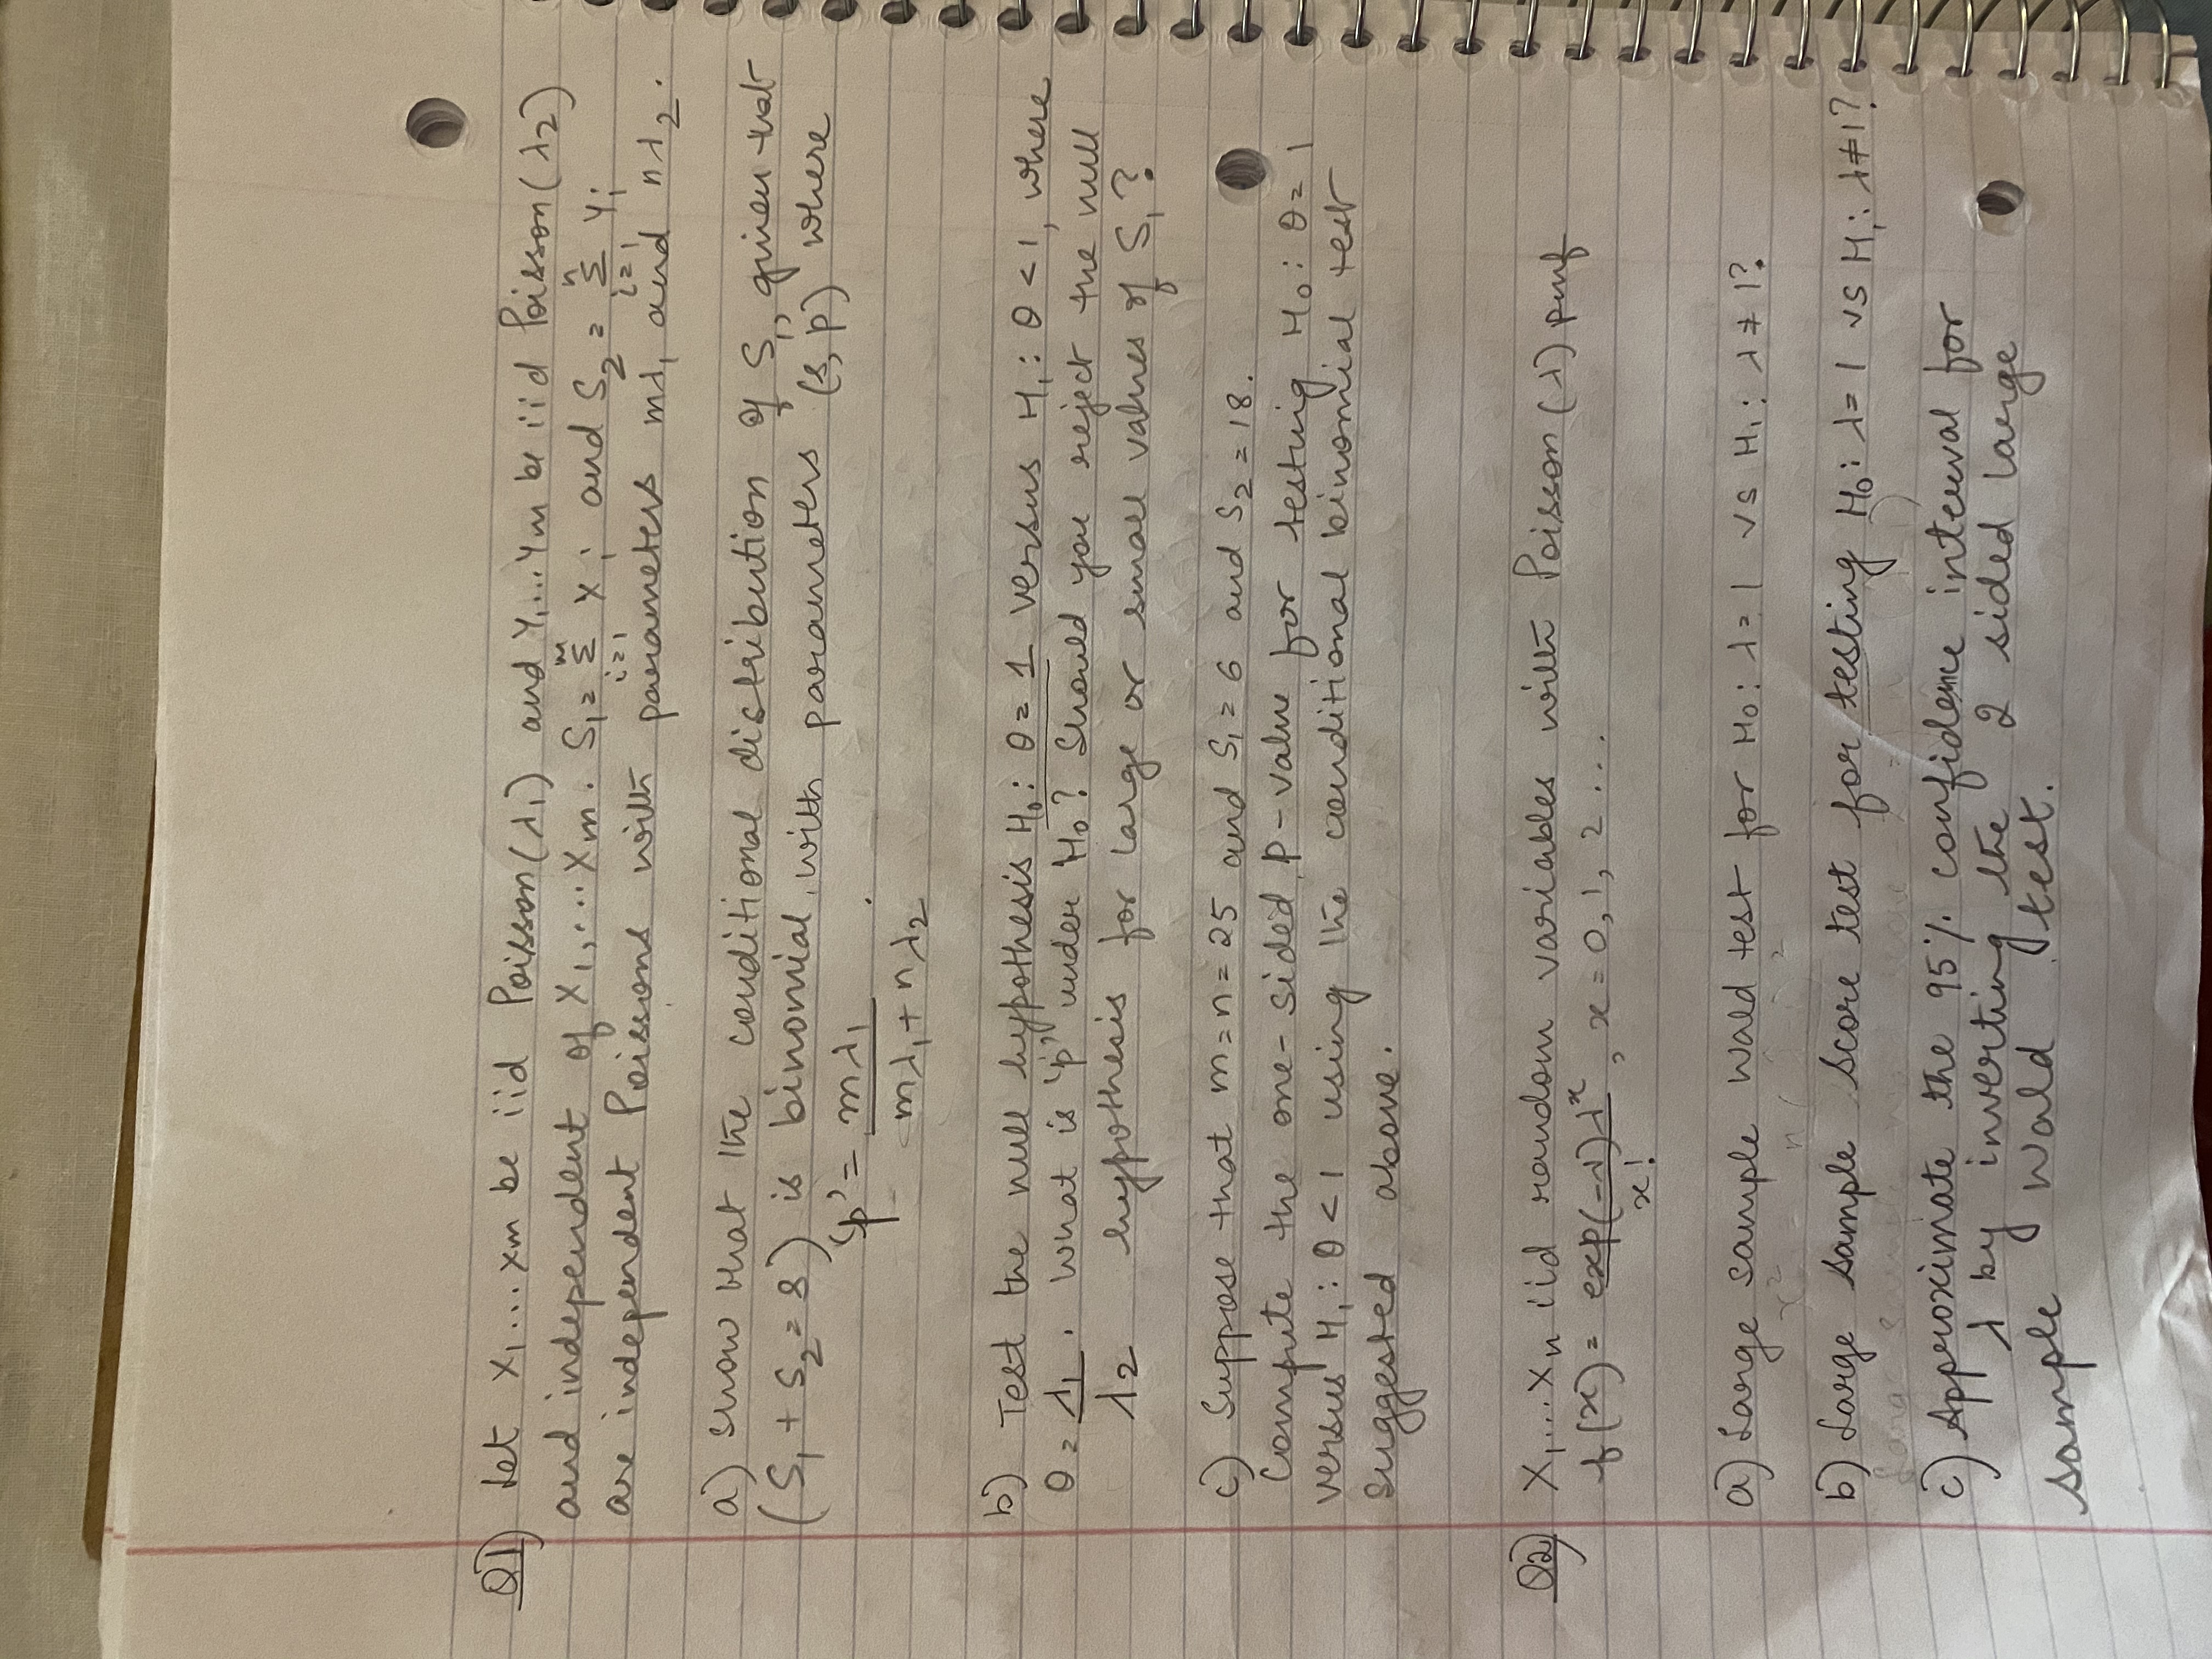 Q1) Let X₁...Xm be iid Poisson(λ₁) and Y₁...Ym be iid Poisson(λ2)
and independent of X₁,...Xm. S₁= m Σ i=1 Xi and S₂ = n Σ i=1 Yi
are independent Poissons with parameters mλ₁ and nλ₂.
a) Show that the conditional distribution of S₁, given that
(S₁ + S₂ = s) is binomial with parameters (s, p) where
'p' = mλ₁ / mλ₁ + nλ₂
b) Test the null hypothesis H₀: θ = 1 versus H₁: θ < 1, where
θ = λ₁ / λ2. What is 'p' under H₀? Should you reject the null
hypothesis for large or small values of S₁?
c) Suppose that m = n = 25 and S₁ = 6 and S₂ = 18.
Compute the one-sided P-value for testing H₀: θ = 1
versus H₁: θ < 1 using the conditional binomial test
suggested above.
Q2) X₁...Xn iid random variables with Poisson(λ) pmf
f(x) = exp(-λ)λˣ / x!, x = 0, 1, 2...
a) Large sample Wald test for H₀: λ = 1 vs H₁: λ ≠ 1?
b) Large sample score test for testing H₀: λ = 1 vs H₁: λ ≠ 1?
c) Approximate the 95% confidence interval for
λ by inverting the 2 sided large
sample Wald test.